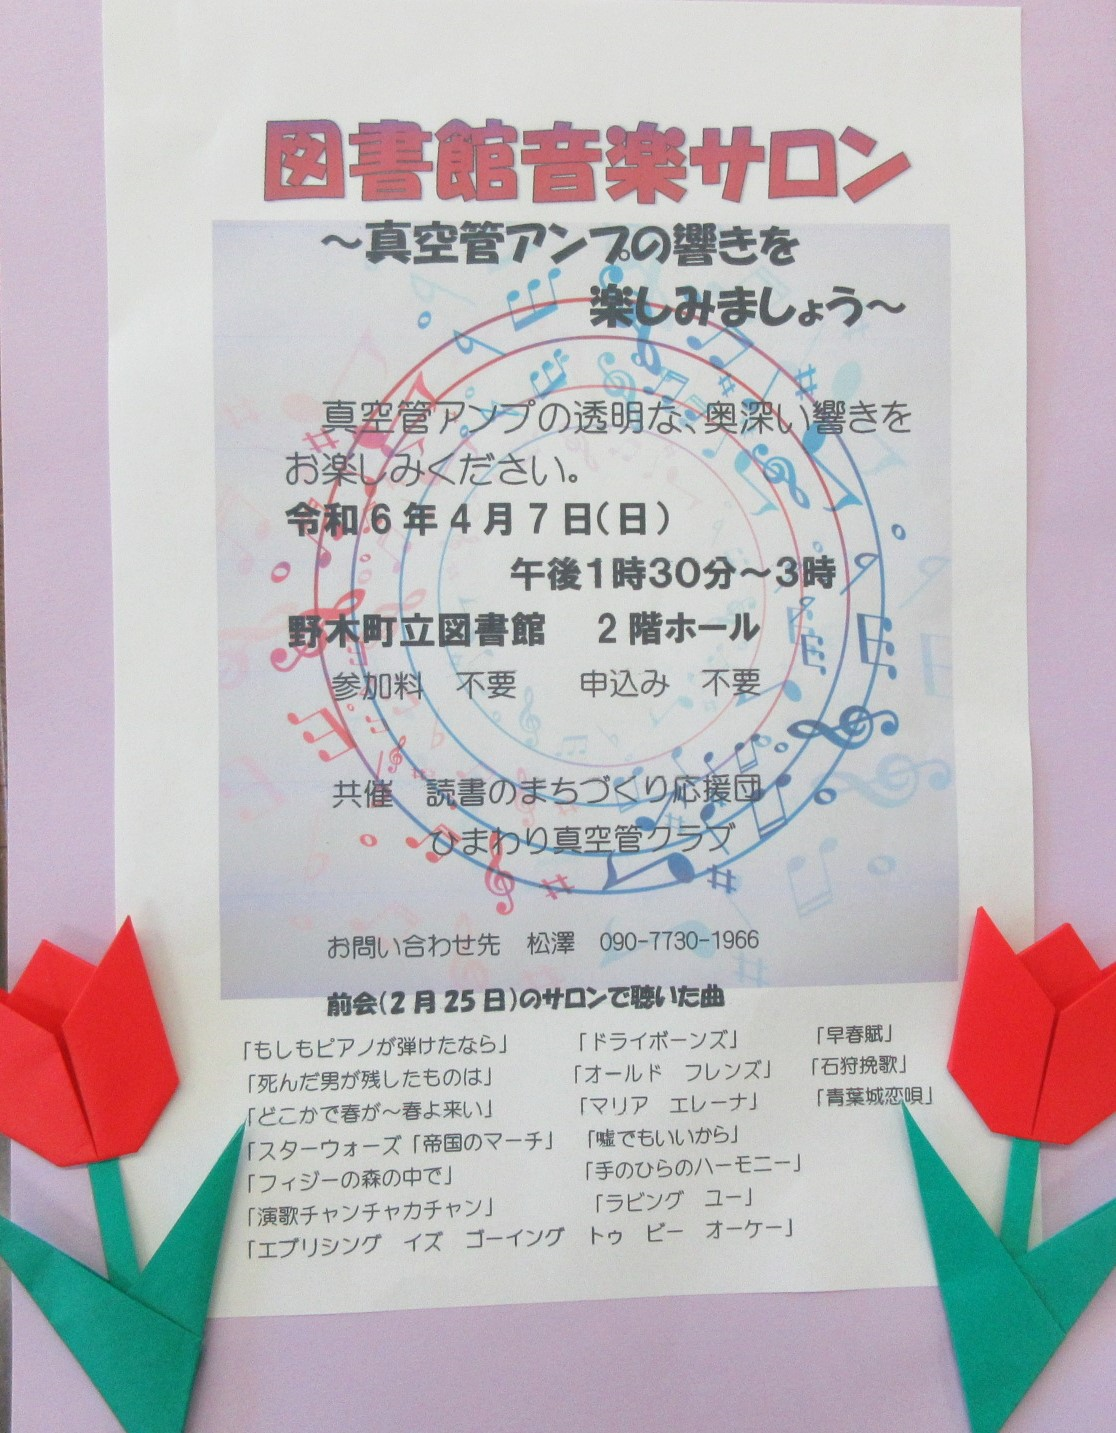 図書館音楽サロン
～真空管アンプの響きを
楽しみましょう～
真空管アンプの透明な、奥深い響きを
お楽しみください。
令和6年4月7日(日)
午後1時30分～3時
野木町立図書館　2階ホール
参加料　不要　　申込み　不要
共催　読書のまちづくり応援団
ひまわり真空管クラブ
お問い合わせ先　松澤　090-7730-1966
前会(2月25日)のサロンで聴いた曲
「もしもピアノが弾けたなら」　「ドライボーンズ」　「早春賦」
「死んだ男が残したものは」　「オールド　フレンズ」　「石狩挽歌」
「どこかで春が～春よ来い」　「マリア　エレーナ」　「青葉城恋唄」
「スターウォーズ「帝国のマーチ」　「嘘でもいいから」
「フィジーの森の中で」　「手のひらのハーモニー」
「演歌チャンチャカチャン」　「ラビング　ユー」
「エブリシング　イズ　ゴーイング　トゥ　ビー　オーケー」